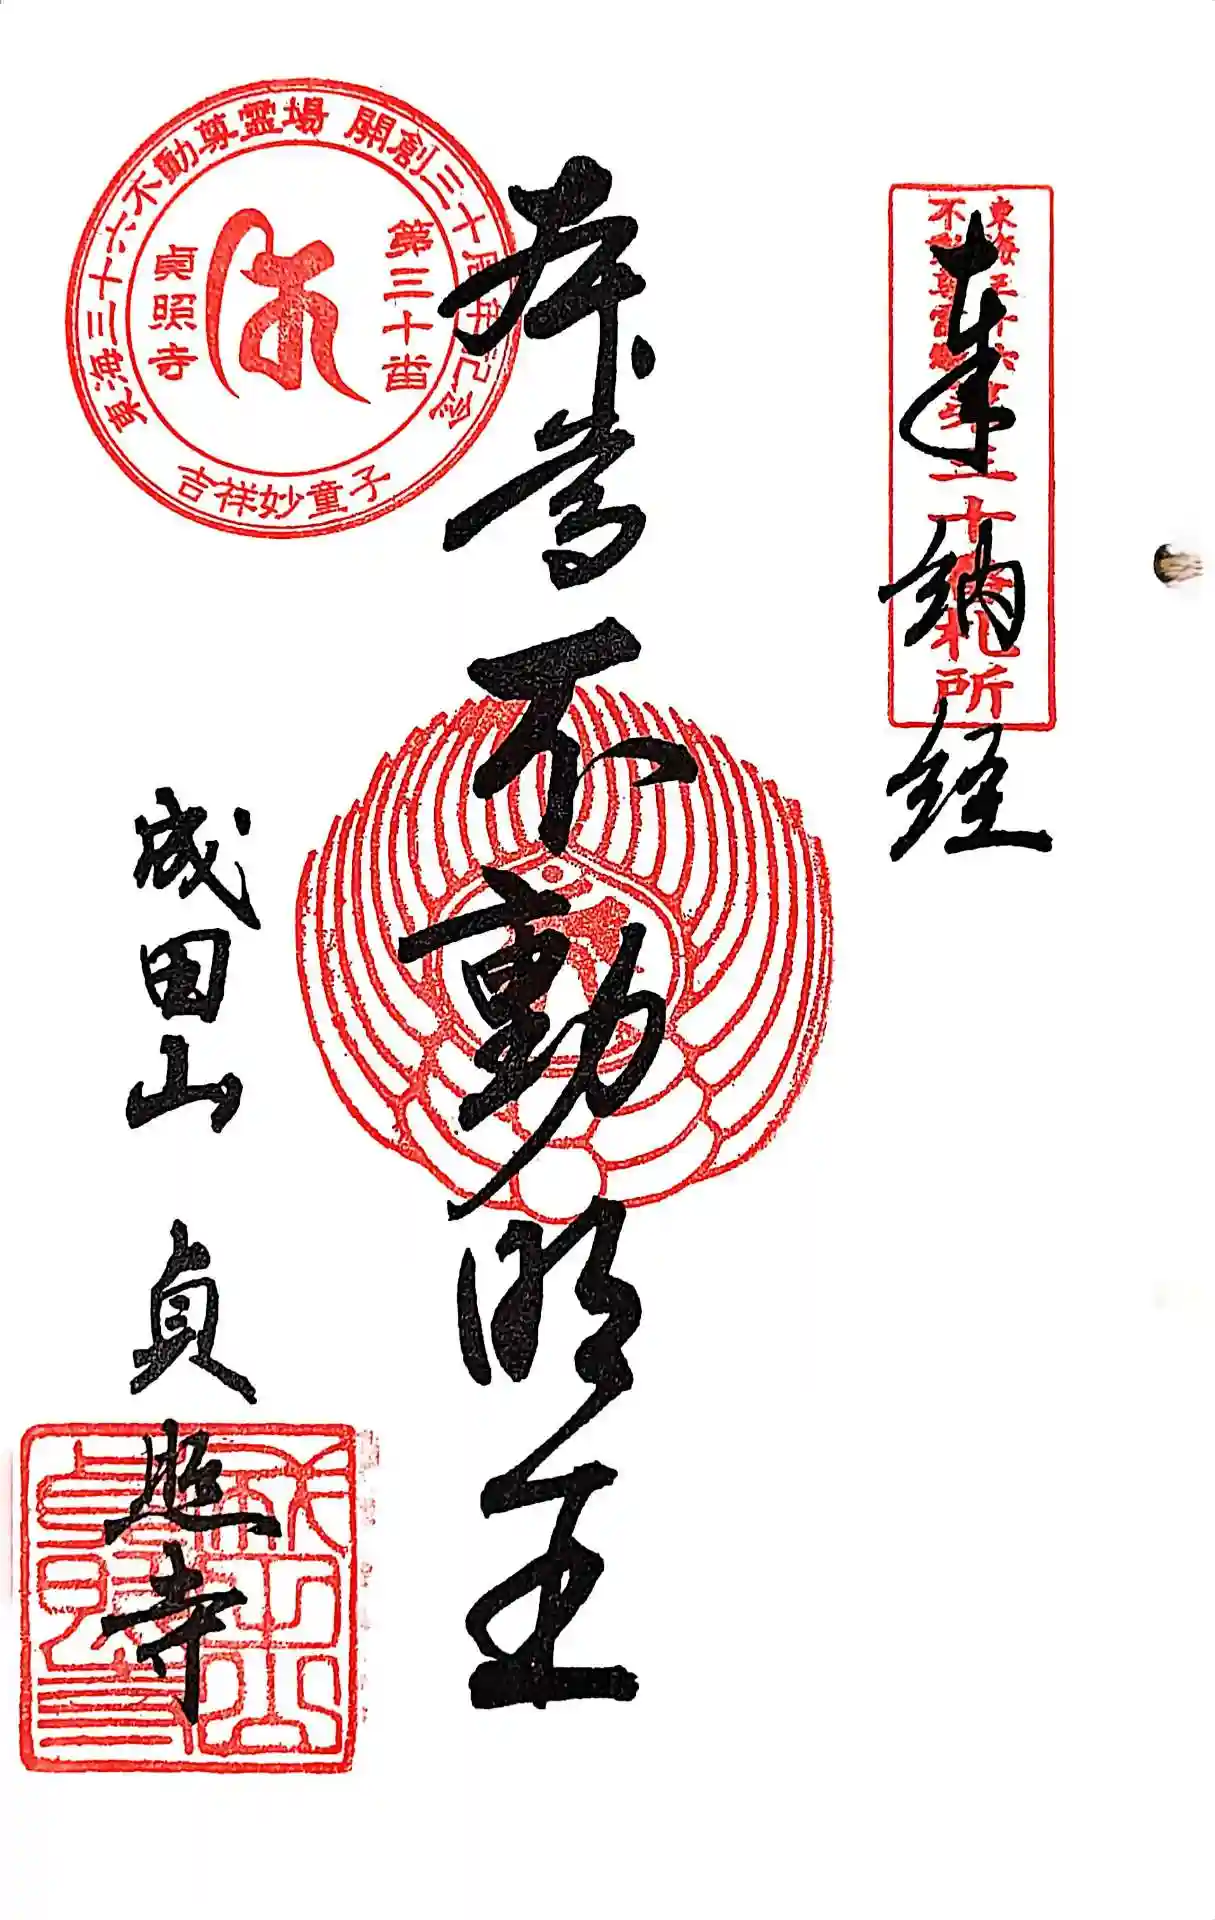 奉納経
東海三十六
不動尊霊場第三十番札所
本尊不動明王
東海三十六不動尊霊場 開創三十周年記念
第三十番
貞照寺
吉祥妙童子
成田山 貞照寺
成田山
貞照寺